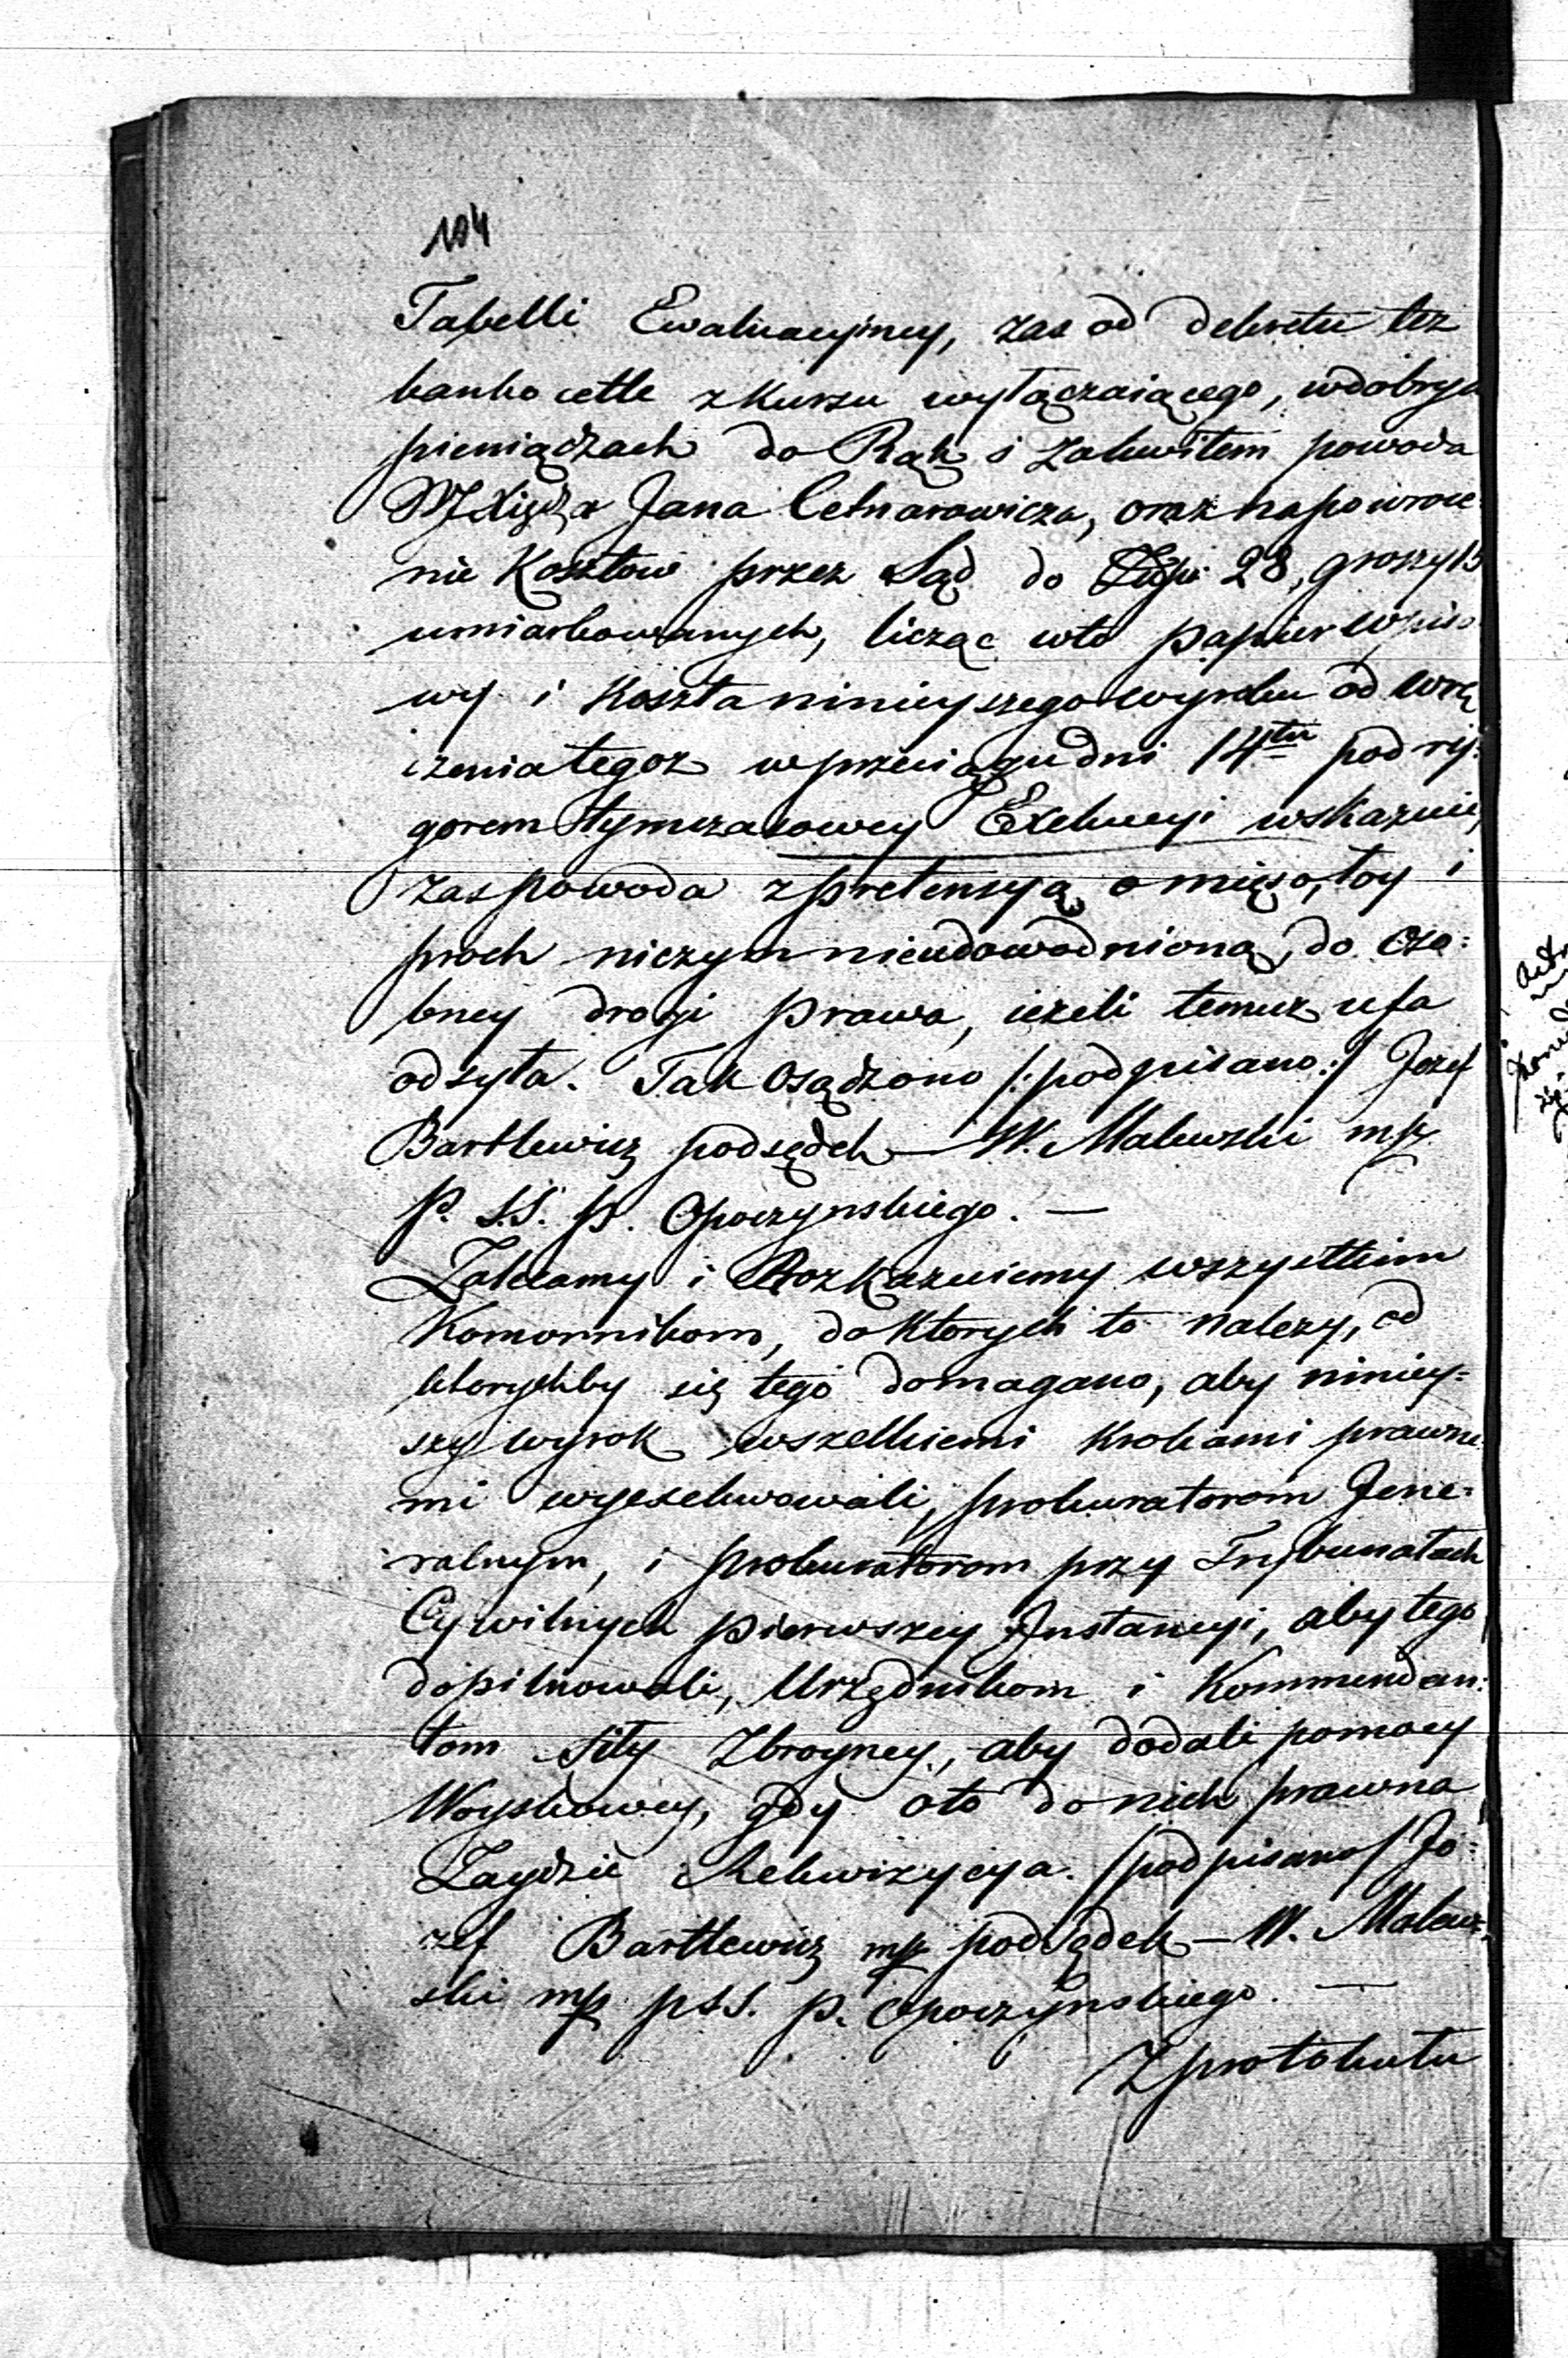 104
Tabelli Ewaluacyjney, zas od dekretu tez
banko cetle z kursu wyłączaiącego, w dobrych
pieniądzach do Rąk i zakwitem powoda
Xiędza Jana Cetnarowicza, oraz na powroce
nie Kosztow przez Sąd do 28, groszy 15
umiarkowanych, licząc w to papier wpiso
wy i Koszta ninieyszego wyroku od wrę
czenia tegoz w przeciągu dni 14tu pod ry:
gorem tymczasowey Exekucyi wskazuie,
zas powoda z pretensyą o mięso, łoy i
proch niczym nieudowodnioną, do oso:
bney drogi prawa, iezeli temuz ufa
odsyła. Tak Osądzono /:podpisano:/ Jozef
Bartlewicz podsędek — W. Malewski mp
P. S.S. P. Opoczynskiego. —
Zalecamy i Rozkazuiemy wszystkim
Komornikom, do ktorych to nalezy, od
ktorychby się tego domagano, aby niniey=
szy wyrok wszelkiemi krokami prawne
mi wyexekwowali, prokuratorom Jene=
ralnym, i prokuratorom przy Trybunałach
Cywilnych pierwszey Instancyi, aby tego
dopilnowali, Urzędnikom i Kommendan:
tom siły Zbroyney, aby dodali pomocy
Woyskowey, gdy o to do nich prawna
Zaydzie Rekwizycya. /podpisano/ Jo=
zef Bartlewicz mp podsędek — W. Malew=
ski mp PSS. P. Opoczynskiego. —
Z protokułu